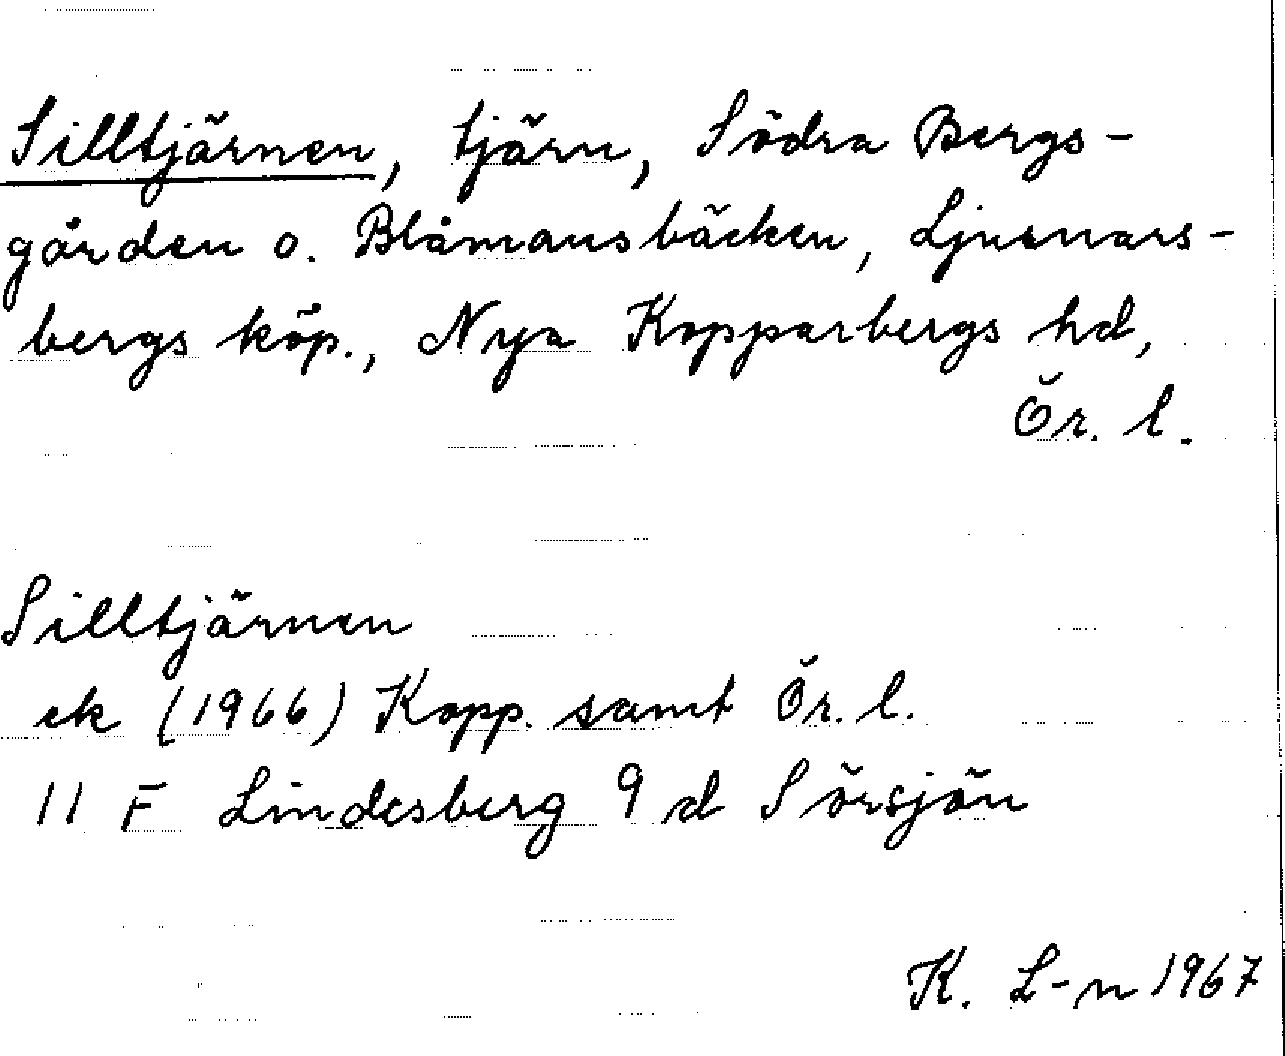 Silltjärnen, tjärn, Södra Bergs-
gården o. Blåmansbäcken, Ljusnars-
bergs köp., Nya Kopparbergs hd,
Ör. l.
Silltjärnen
ek (1966) Kopp. samt Ör. l.
11 F Lindesberg 9 d Sörsjön
K. L-n 1967